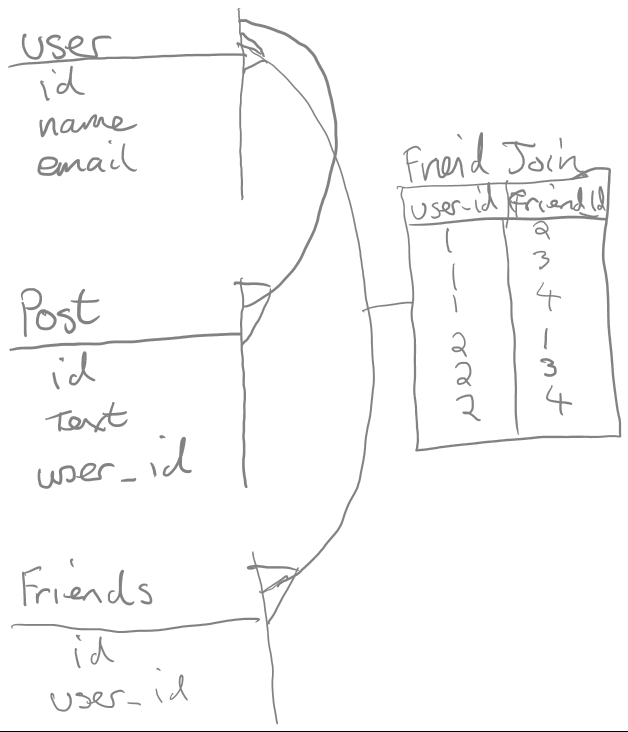 user
id
name
email
Post
id
Text
user_id
Friends
id
user_id
Freid Join
user_id friendId
1 2
1 3
1 4
2 1
2 3
2 4